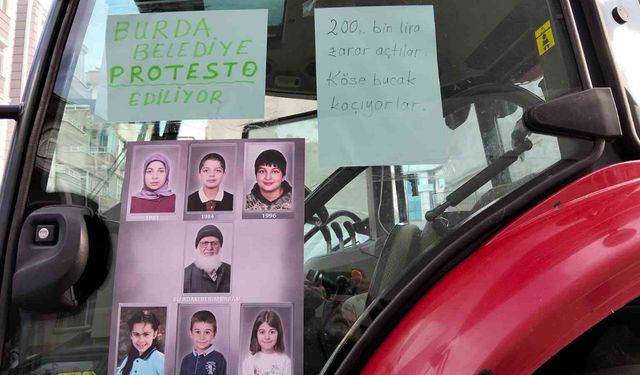 BURDA
BELEDİYE
PROTESTO
EDİLİYOR
200,. bin lira
zarar açtılar.
Köse bucak
kaçıyorlar.
1984
1996